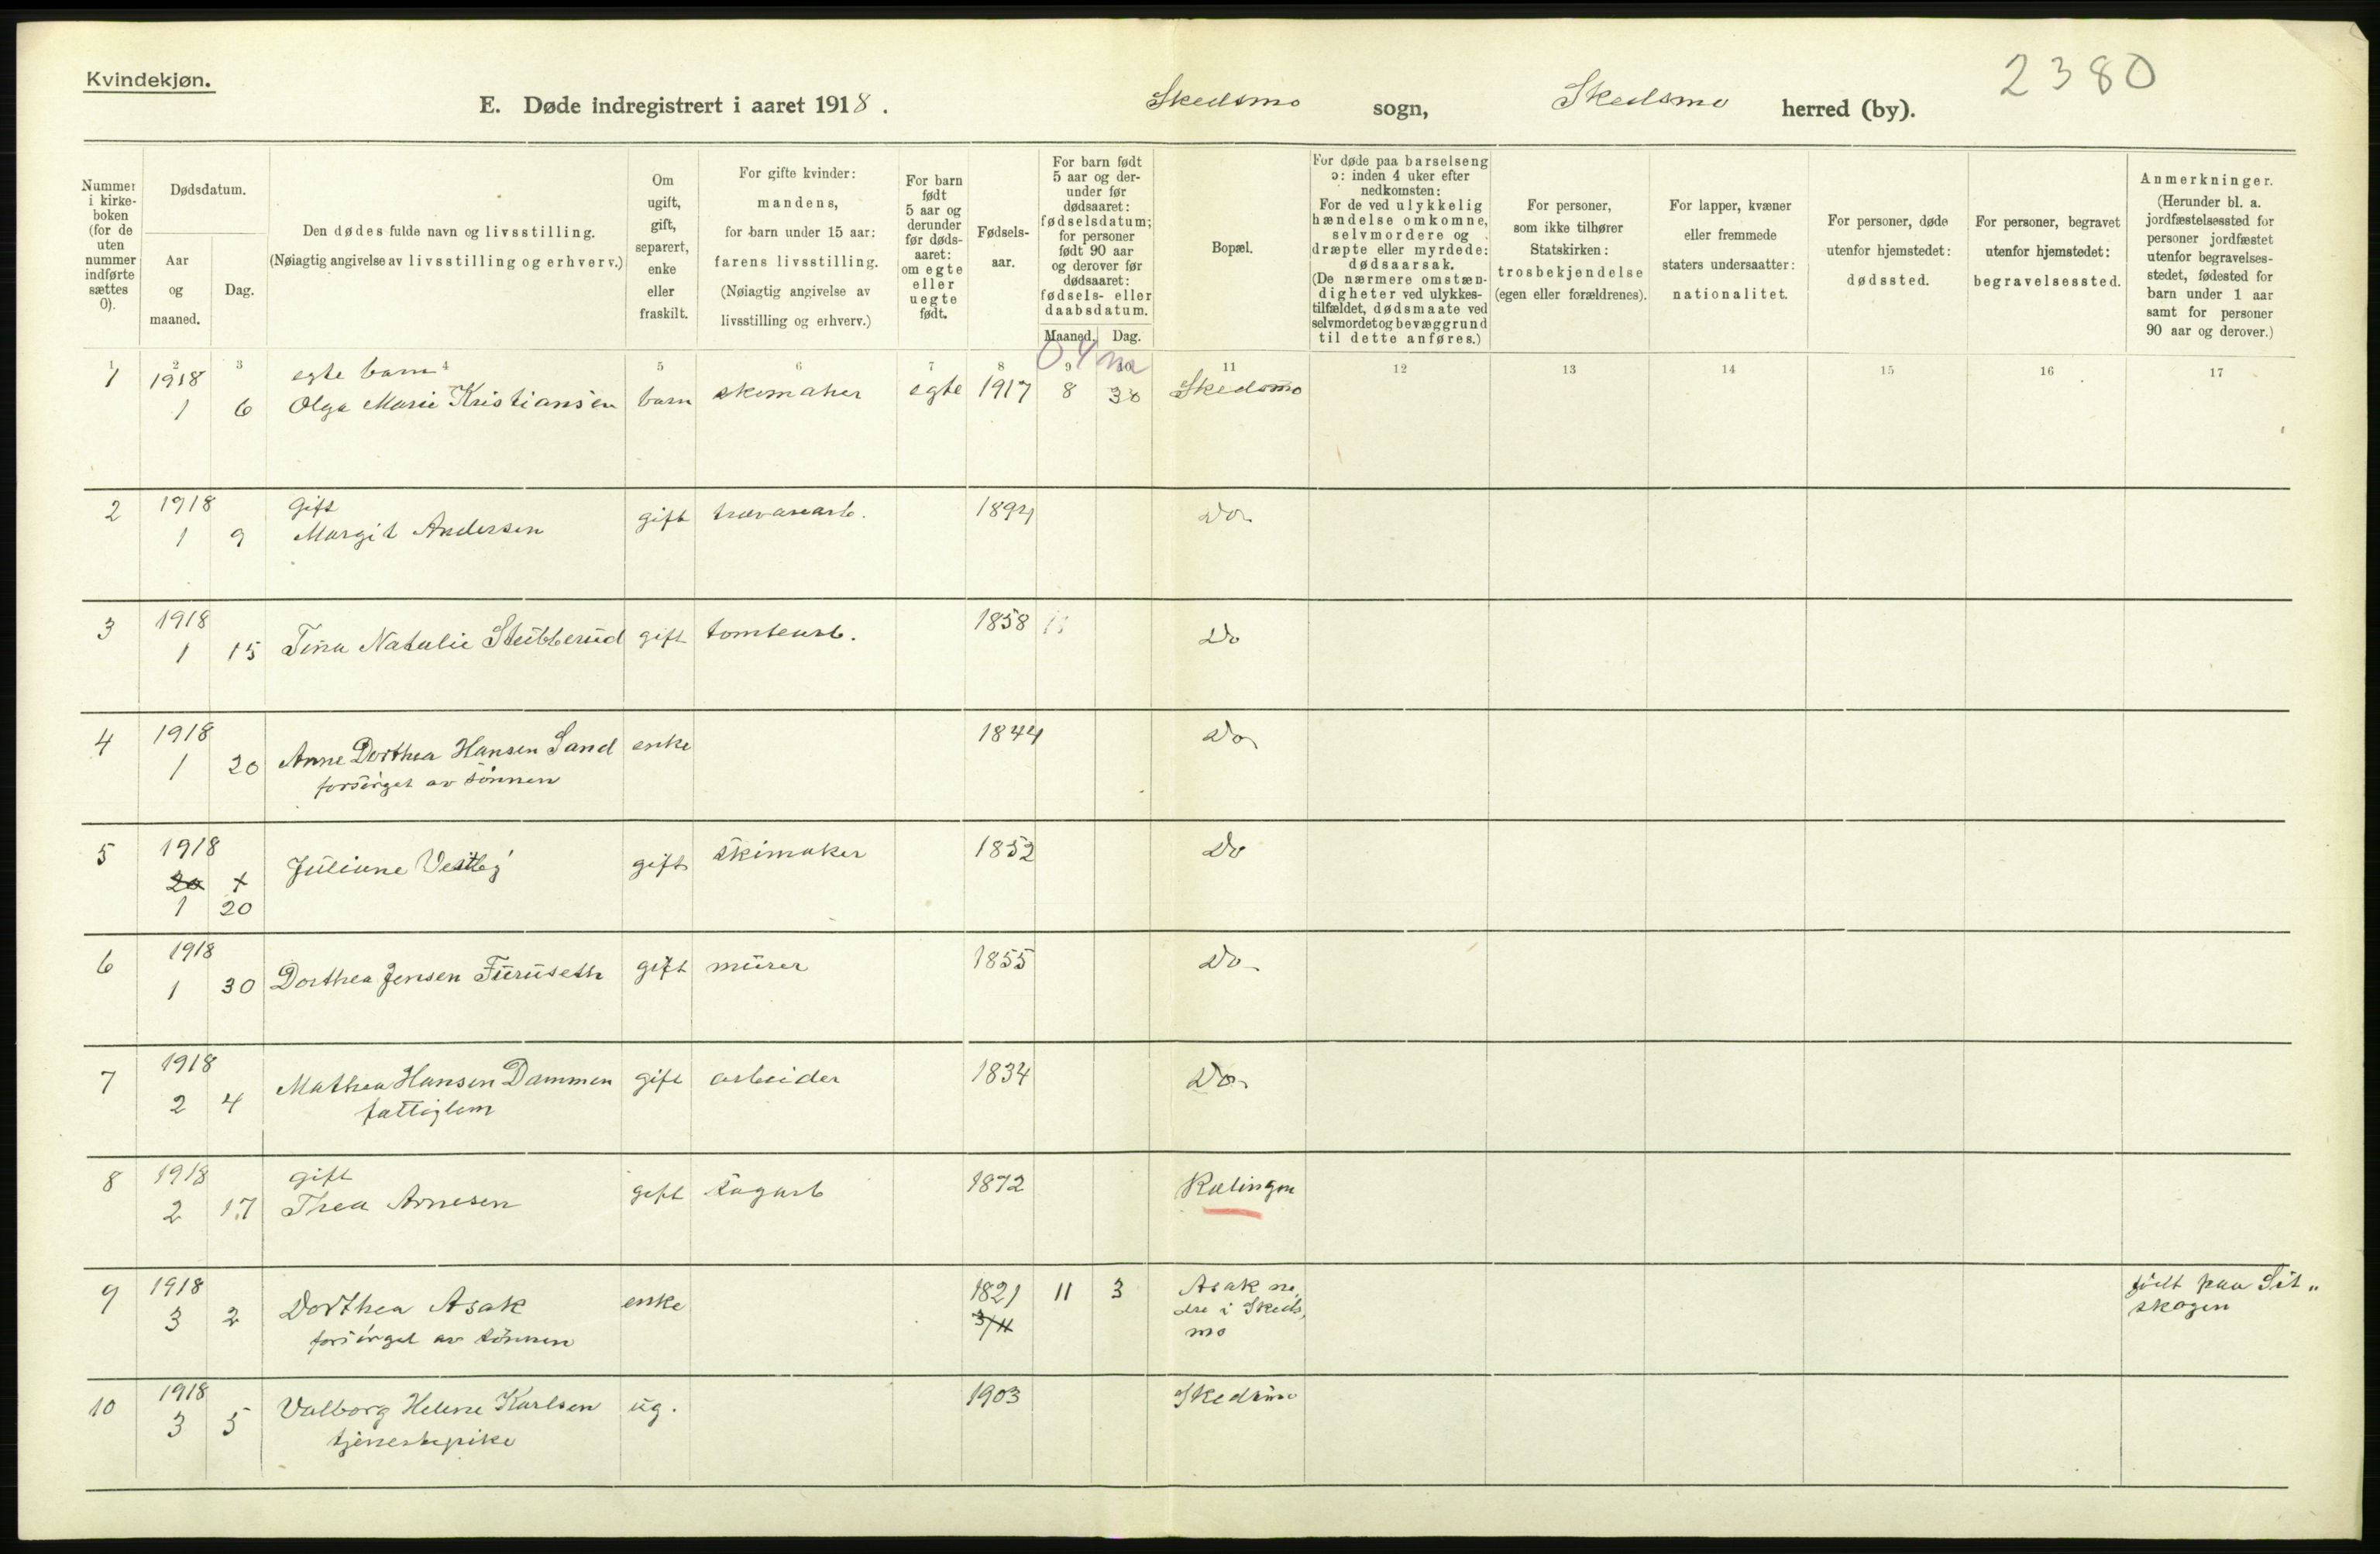 Kvindekjøn.
2380
E. Døde indregistrert i aaret 1918. Skedsmo sogn, Skedsmo herred (by).
Nummer i kirke-boken (for de uten nummer indførte sættes 0).
Dødsdatum.
Aar og maaned.
Dag.
Den dødes fulde navn og livsstilling.
(Nøiagtig angivelse av livsstilling og erhverv.)
Om ugift, gift, separert, enke eller fraskilt.
For gifte kvinder: mandens, for barn under 15 aar: farens livsstilling.
(Nøiagtig angivelse av livsstilling og erhverv.)
For barn født 5 aar og derunder før døds-aaret: om egte eller uegte født.
Fødsels-aar.
For barn født 5 aar og der-under før dødsaaret: fødselsdatum; for personer født 90 aar og derover før dødsaaret: fødsels- eller daabsdatum.
Maaned. Dag.
Bopæl.
For døde paa barselseng ɔ: inden 4 uker efter nedkomsten:
For de ved ulykkelig hændelse omkomne, selvmordere og dræpte eller myrdede: dødsaarsak.
(De nærmere omstæn-digheter ved ulykkes-tilfældet, dødsmaate ved selvmordet og bevæggrund til dette anføres.)
For personer, som ikke tilhører Statskirken: trosbekjendelse (egen eller forældrenes).
For lapper, kvæner eller fremmede staters undersaatter: nationalitet.
For personer, døde utenfor hjemstedet: dødssted.
For personer, begravet utenfor hjemstedet: begravelsessted.
Anmerkninger.
(Herunder bl. a. jordfæstelsessted for personer jordfæstet utenfor begravelses-stedet, fødested for barn under 1 aar samt for personer 90 aar og derover.)
1 2 3 4 5 6 7 8 9 10 11 12 13 14 15 16 17
0 4 m
1 1918 egte barn
1 6 Olga Marie Kristiansen barn skomaker egte 1917 8 30 Skedsmo
2 1918 gift
1 9 Margit Andersen gift trævarearb. 1894 Do
3 1918
1 15 Tina Natalie Stubberud gift tomtearb. 1858 Do
4 1918
1 20 Anne Dorthea Hansen Sand enke 1844 Do
forsørget av sønnen
5 1918
20 1 Juliane Vestby gift skimaker 1852 Do
1 20
6 1918
1 30 Dorthea Jensen Furuseth gift murer 1855 Do
7 1918
2 4 Mathea Hansen Dammen gift arbeider 1834 Do
fattiglem
8 1918 gift
2 17 Thea Arnesen gift sagarb 1872 Rælingen
9 1918
3 2 Dorthea Asak enke 1821 11 3 Asak ne,
3/11 dre i Skeds,
mo
forsørget av sønnen
født paa Sit„
skogen
10 1918
3 5 Valborg Helene Karlsen ug. 1903 Skedsmo
tjenestepike